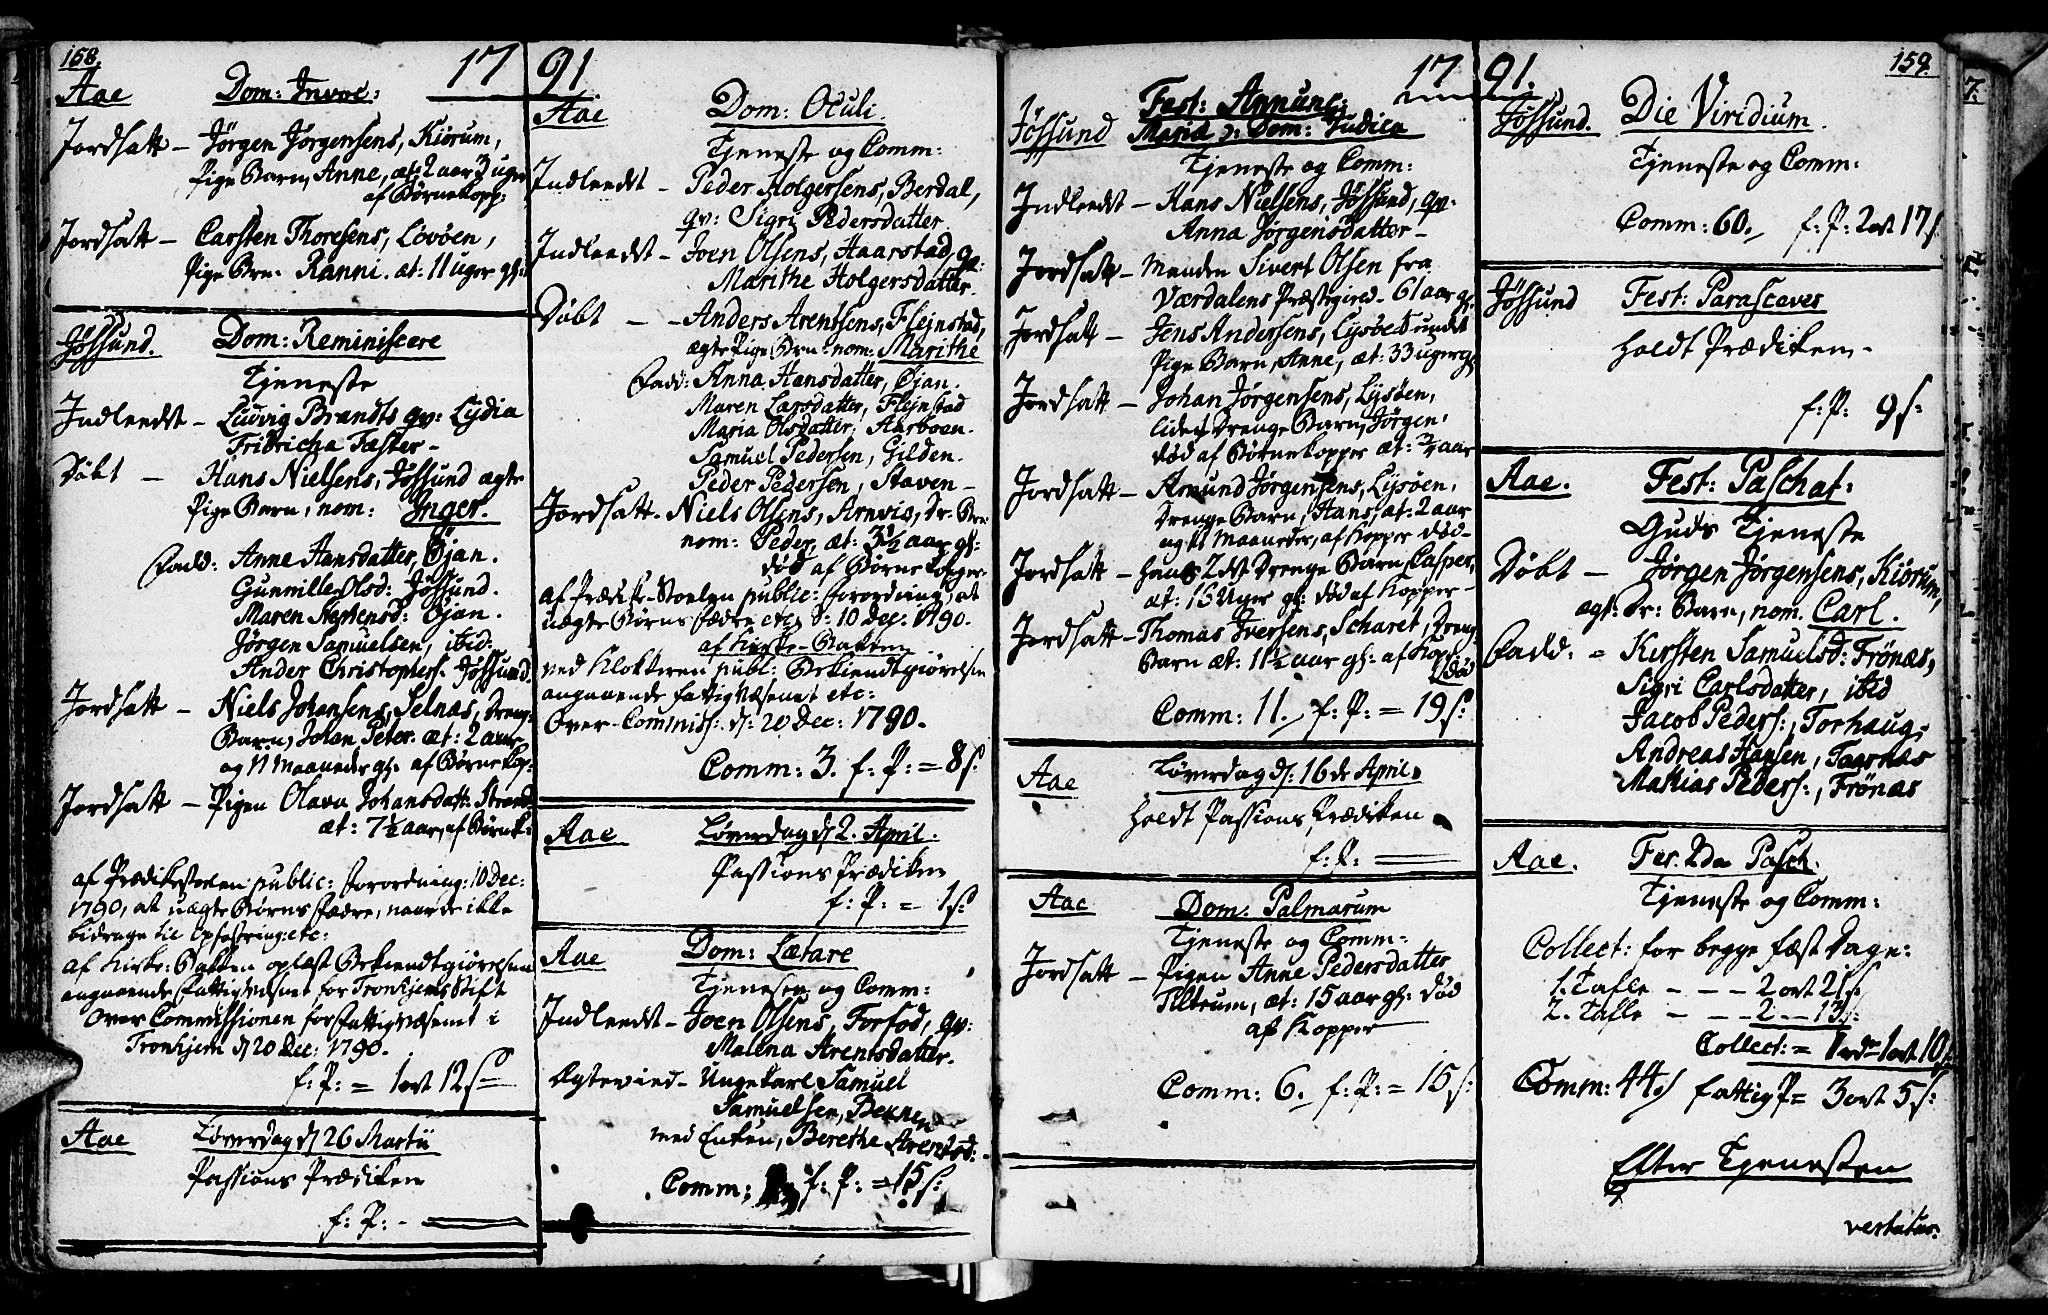 158.
17 91.
Aae Dom: Invoc:
Jordsatt – Jörgen Jörgensens, Kiörum,
Pige Barn, Anne, æt: 2 aar 3 uger
af Börnekopp:
Jordsatt – Carsten Thoresens, Lövöen,
Pige Brn. Ranni. æt: 11 uger gl:
Jössund. Dom: Reminiscere
Tjeneste
Indleedt – Ludvig Brandts qv: Lydia
Fridricha Tæsker –
Döbt – Hans Nielsens, Jössund ægte
Pige Barn, nom: Inger.
Fadd: Anne Hansdatter, Öjan.
Gunnille Olsd: Jössund.
Maren Jespensd: Öjan.
Jörgen Samuelsen, ibid:
Ander Christophers. Jössund.
Jordsatt – Niels Johansens, Selnæs, Dreng-
Barn, Johan Peter. æt: 2 aar
og 11 Maaneder gl: af Börnekop:
Jordsatt – Pigen Olava Johansdatt: Strand
æt: 7½ aar, af Börnek:
af Prædikestoelen public: Forordning: 10 Dec:
1790, at uægte Börns Fædre, naar de ikke
bidrage til Opfostring: etc:
af Kirke-Bakken oplæst Bekiendtgiörelsen
angaaende Fattigvæsnet for Tronhjems Stift
Over Commissionen for Fattigvæsenet i
Tronhjem d 20 Dec: 1790.
f: P: = 1 ort 12 s
Aae Löverdag d 26 Martii
Passions Prædiken
f: P: –
Aae Dom: Oculi.
Tjeneste og Comm:
Indleedt – Peder Holgersens, Berdal,
qv: Sigri Pedersdatter
Indleedt – Joen Olsens, Haarstad, qv:
Marithe Holgersdatter.
Döbt – Anders Arentsens, Flejnstad,
ægte Pige Brn: nom: Marithe
Fadd: Anna Hansdatter, Öjan.
Maren Larsdatter, Flejnstad
Maria Olsdatter, Aarboen.
Samuel Pedersen, Gilden.
Peder Pedersen, Staven –
Jordsatt – Niels Olsens, Arnvig, Dr. Brn
nom: Peder, æt: 3½ aar gl:
död af Börnekopper.
af Prædike-Stoelen public: Forordning, at
uægte Börns Fædre etc. d: 10 Dec: 1790.
af Kirke-Bakken
ved Klokkeren publ: Bekiendtgiörelsen
angaaende Fattigvæsenet etc:
Over-Commiss: d: 20 Dec: 1790.
Comm: 3. f: P: = 8 s.
Aae Löverdag d 2. April.
Passions Prædiken
f: P: = 1 s:
Aae Dom: Lætare
Tjenesten og Comm:
Indleedt – Joen Olsens, Forfod, qv:
Malena Arentsdatter.
Ægtevied – Ungekarl Samuel
Samuelsen,
med Enken, Berethe Arentsd:
Comm: f: P: = 15 s:
17 91.
159.
Jössund Fest: Annunc:
Mariæ ɔ: Dom: Judica
Tjeneste og Comm:
Indleedt – Hans Nielsens, Jössund, qv:
Anna Jörgensdatter –
Jordsatt – Manden Sivert Olsen fra
Værdalens Præstegield – 61 aar gl.
Jordsatt – Jens Andersens, Lysöesundet
Pige Barn, Anne, æt: 33 uger gl
Jordsatt – Johan Jörgensens, Lysöen,
lidet Drenge Barn, Jörgen,
död af Börnekopper æt: ¾ aar
Jordsatt – Amund Jörgensens, Lysöen,
Drenge Barn, Hans, æt: 2 aar
og 11 Maaneder, af Kopper död –
Jordsatt – Hans 2det Drenge Barn Casper,
æt: 15 Uger gl: död af Kopper –
Jordsatt – Thomas Iversens, Scharet, Dreng
Barn æt: 11½ aar gl: af Kopp:
död
Comm: 11. f: P: = 19 s:
Aae Löverdag d: 16de April.
Holdt Passions Prædiken
f: P:
Aae Dom: Palmarum
Tjeneste og Comm:
Jordsatt – Pigen Anne Pedersdatter
Tiltrum, æt: 15 aar gl: död
af Kopper
Comm: 6. f: P: = 15 s:
Jössund. Die Viridium.
Tjeneste og Comm:
Comm: 60. f: P: 2 ort 17 s.
Jössund Fest: Parasceves
Holdt Prædiken –
f: P: 9 s:
Aae. Fest: Paschat:
Guds Tjeneste
Döbt – Jörgen Jörgensens, Kiörum,
ægt: Dr: Barn, nom. Carl.
Fadd: = Kirsten Samuelsd: Frönæs,
Sigri Carlsdatter, ibid
Jacob Peders:, Torhaug,
Andreas Hansen, Taarnæs
Mathias Peders:, Frönæs
Aae. Fer. 2da Pasch:
Tjeneste og Comm:
Collect: for begge Fæst Dage:
1. Tafle – – – 2 ort 21 s
2. Tafle – – – 2 – 13 s:
Collect: = 1 rdr 1 ort 10 s
Comm: 44 / Fattig P = 3 ort 5 s:
Efter Tjenesten
vertatur.